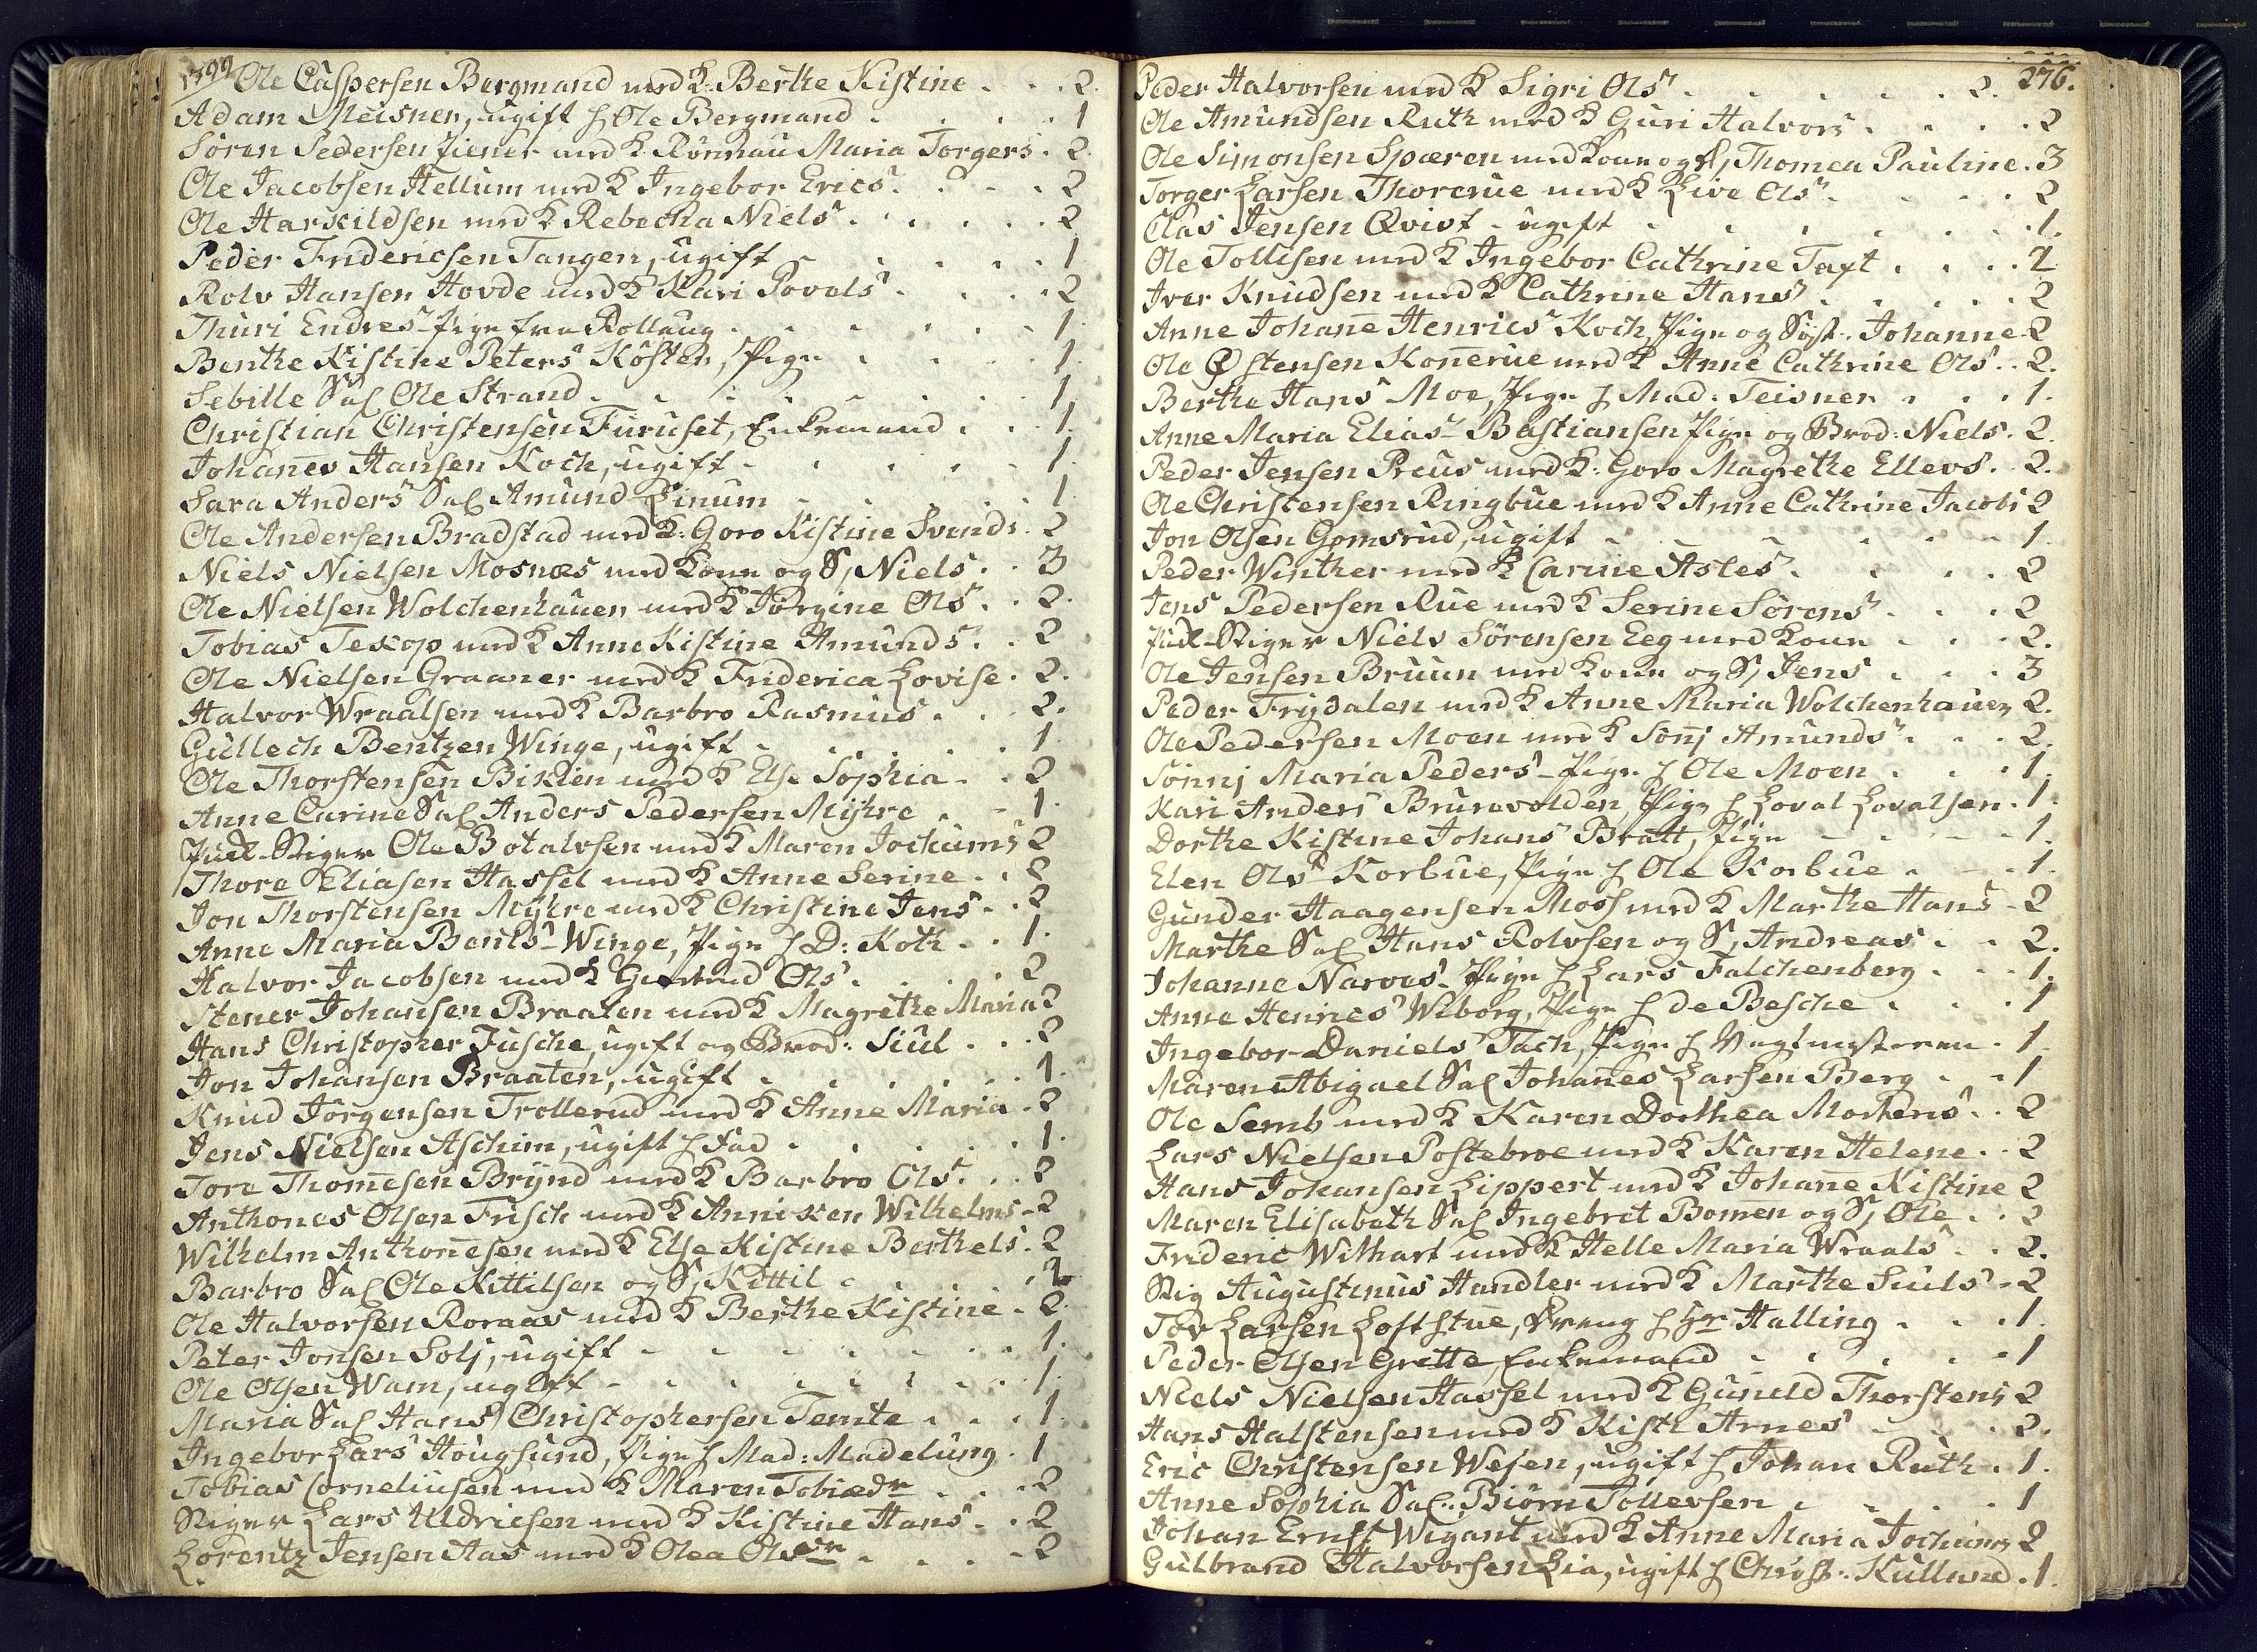 1799 Ole Caspersen Bergmand med K: Berthe Kistine . . . 2.
Adam Meisner, ugift h Ole Bergmand . . . . 1
Søren Pedersen Ziener med K Rønnau Maria Torgers . 2.
Ole Jacobsen Hellum med K Ingebor Erics . . . 2
Ole Harkildsen med K Rebecha Niels . . . . . 2
Peder Fridericsen Tangen, ugift . . . . . 1
Rolv Hansen Hovde med K Kari Povels . . . . 2
Thuri Endres - Pige fra Rollaug . . . . . . 1
Benthe Kistine Peters Køster, Pige . . . . 1
Sebille Sal Ole Strand . . . . . . . 1
Christian Christensen Furuset, Enkemand . . . 1.
Johanes Hansen Koch, ugift . . . . . . 1.
Sara Anders Sal Amund Linum . . . . . 1
Ole Andersen Bradstad med K: Goro Kistine Svends . 2
Niels Nielsen Mosnæs med Kone og S, Niels . . 3
Ole Nielsen Wolchenhauer med K Jørgine Ols . . 2.
Tobias Teskop med K Anne Kistine Amunds . . 2
Ole Nielsen Graaner med K Friderica Lovise . 2.
Halvor Wraalsen med K Barbro Rasmus . . . 2.
Gullech Bentzen Winge, ugift . . . . . . 1.
Ole Thorstensen Biklien med K Else Sophia . . 2
Anne Carine Sal Anders Pedersen Myhre . . 1.
Juel-Stiger Ole Botolvsen med K Maren Jochums 2
Thore Eliasen Hassel med K Anne Serine . . 2
Jon Thorstensen Myhre med K Christine Jens . . 2
Anne Maria Bents - Winge, Pige h D: Koth . . 1.
Halvor Jacobsen med K Giertrud Ols . . . . 2
Stener Johansen Braaten med K Magrethe Maria 2
Hans Christopher Fusche, ugift og Brod: Siul . . . 2
Jon Johansen Braaten, ugift . . . . . . 1.
Knud Jørgensen Trollerud med K Anne Maria . 2
Jens Nielsen Aschim, ugift h Fad . . . . . 1.
Tore Thomesen Brynd med K Barbro Ols . . . 2
Anthones Olsen Frisch med K Anniken Wilhelms - 2
Wilhelm Anthonesen med K Else Kistine Berthels . 2
Barbro Sal Ole Kittilsen og S, Kittil . . . . 2
Ole Halvorsen Roraas med K Berthe Kistine . 2.
Peter Jonsen Solj, ugift - . . . . . . . 1.
Ole Olsen Wam, ugift - . . . . . . . 1.
Maria Sal Hans Christophersen Temte . . . 1.
Ingebor Lars Hougsund, Pige h Mad: Madelung . 1
Tobias Corneliusen med K Maren Tobiædr . . . 2
Stiger Lars Uldricsen med K Kistine Hans . . 2
Lorentz Jensen Aas med K Olea Olsdr . . . . 2
276.
Peder Halvorsen med K Sigri Ols . . . . . . 2.
Ole Amundsen Ruth med K Guri Halvors . . . . 2
Ole Simonsen Spæren med Kone og D, Thomea Pauline . 3
Torger Larsen Thorerue med K Live Ols . . . . . 2
Clas Jensen Qvist - ugift . . . . . . . . 1.
Ole Tollisen med K Ingebor Cathrine Taxt . . . . 2
Iver Knudsen med K Cathrine Hans . . . . . 2
Anne Johane Henrics Koch, Pige og Syst. Johanne 2
Ole Østensen Konerue med K Anne Cathrine Ols . . 2.
Berthe Hans Moe, Pige h Mad: Teisner . . . 1.
Anne Maria Elias - Bastiansen Pige og Brod: Niels . 2.
Peder Jensen Preus med K: Goro Magrethe Ellevs . . 2.
Ole Christensen Ringbue med K Anne Cathrine Jacobs 2
Jon Olsen Gomsrud, ugift . . . . . . . 1.
Peder Winther med K Carine Asles . . . . . 2
Jens Pedersen Rue med K Serine Sørens . . . . 2
Juel-Stiger Niels Sørensen Eeg med Kone . . . 2.
Ole Jensen Bruun med Kone og S, Jens . . . 3
Peder Frigdalen med K Anne Maria Wolchenhauer 2.
Ole Pedersen Moen med K Sønj Amunds . . . . 2.
Sønnj Maria Peders - Pige h Ole Moen . . . . 1.
Kari Anders Brunevolden, Pige h Loval Lovalsen . 1.
Dorthe Kistine Johans Bratt, Pige - . . . . 1.
Elen Ols Korbue, Pige h Ole Korbue . . . . 1.
Gunder Haagensen Moss med K Marthe Hans . 2
Marthe Sal Hans Rolvsen og S, Andreas . . . 2.
Johanne Narves - Pige h Lars Falchenberg . . . 1.
Anne Henrics Wiborg, Pige h de Besche . . . 1
Ingebor Daniels Tach, Pige h Vagtmesteren . 1
Maren Abigael Sal Johanes Larsen Berg . . . 1
Ole Semb med K Karen Dorthea Mortens . . 2
Lars Nielsen Postebroe med K Karen Helene . . 2
Hans Johansen Lippert med K Johane Kistine 2
Maren Elisabeth Sal Ingebret Bomen og S, Ole . . 2
Frideric Withart med K Helle Maria Wraals . . 2.
Stig Augustinus Handler med K Marthe Siuls - 2
Tov Larsen Loftstue, Dreng h Hr Halling . . . 1.
Peder Olsen Grette, Enkemand . . . . . . 1
Niels Nielsen Hassel med K Guneld Thorstens 2
Hans Halstensen med K Kisti Arnes . . . . 2.
Eric Christensen Wesen, ugift h Johan Ruth . 1.
Anne Sophia Sal: Biørn Tollevsen . . . . . 1
Johan Ernst Wigant med K Anne Maria Jochums 2
Gulbrand Halvorsen Lia, ugift h Christ: Kulland . 1.